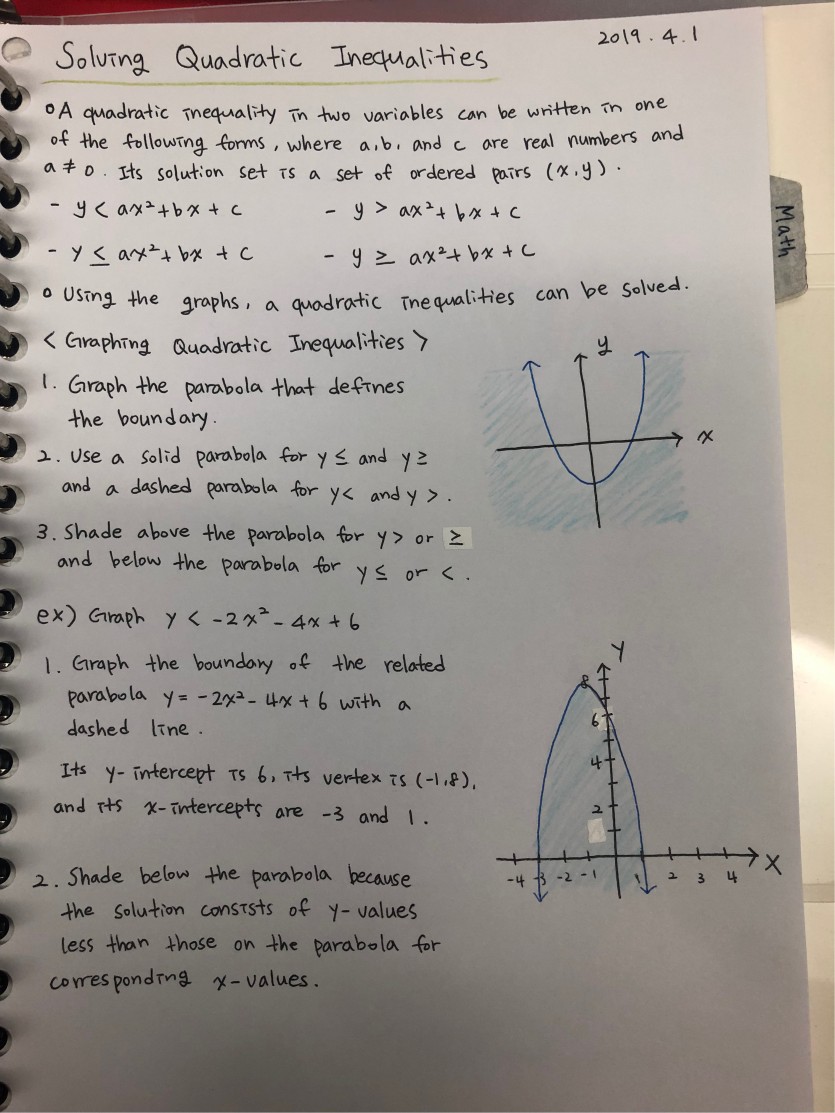 Solving Quadratic Inequalities
2019. 4. 1
∘ A quadratic inequality in two variables can be written in one
of the following forms, where a,b, and c are real numbers and
a ≠ 0. Its solution set is a set of ordered pairs (x,y).
- y < ax²+bx + c
- y > ax²+ bx + c
- y ≤ ax²+ bx + c
- y ≥ ax²+bx + c
∘ Using the graphs, a quadratic inequalities can be solved.
< Graphing Quadratic Inequalities >
1. Graph the parabola that defines
the boundary.
2. Use a solid parabola for y ≤ and y ≥
and a dashed parabola for y< and y >.
3. Shade above the parabola for y> or ≥
and below the parabola for y ≤ or <.
y
x
ex) Graph y < -2x² - 4x + 6
1. Graph the boundary of the related
parabola y = -2x² - 4x + 6 with a
dashed line.
Its y-intercept is 6, its vertex is (-1,8),
and its x-intercepts are -3 and 1.
2. Shade below the parabola because
the solution consists of y-values
less than those on the parabola for
corresponding x-values.
Y
8
6
4
2
-4 -3 -2 -1 1 2 3 4 X
Math